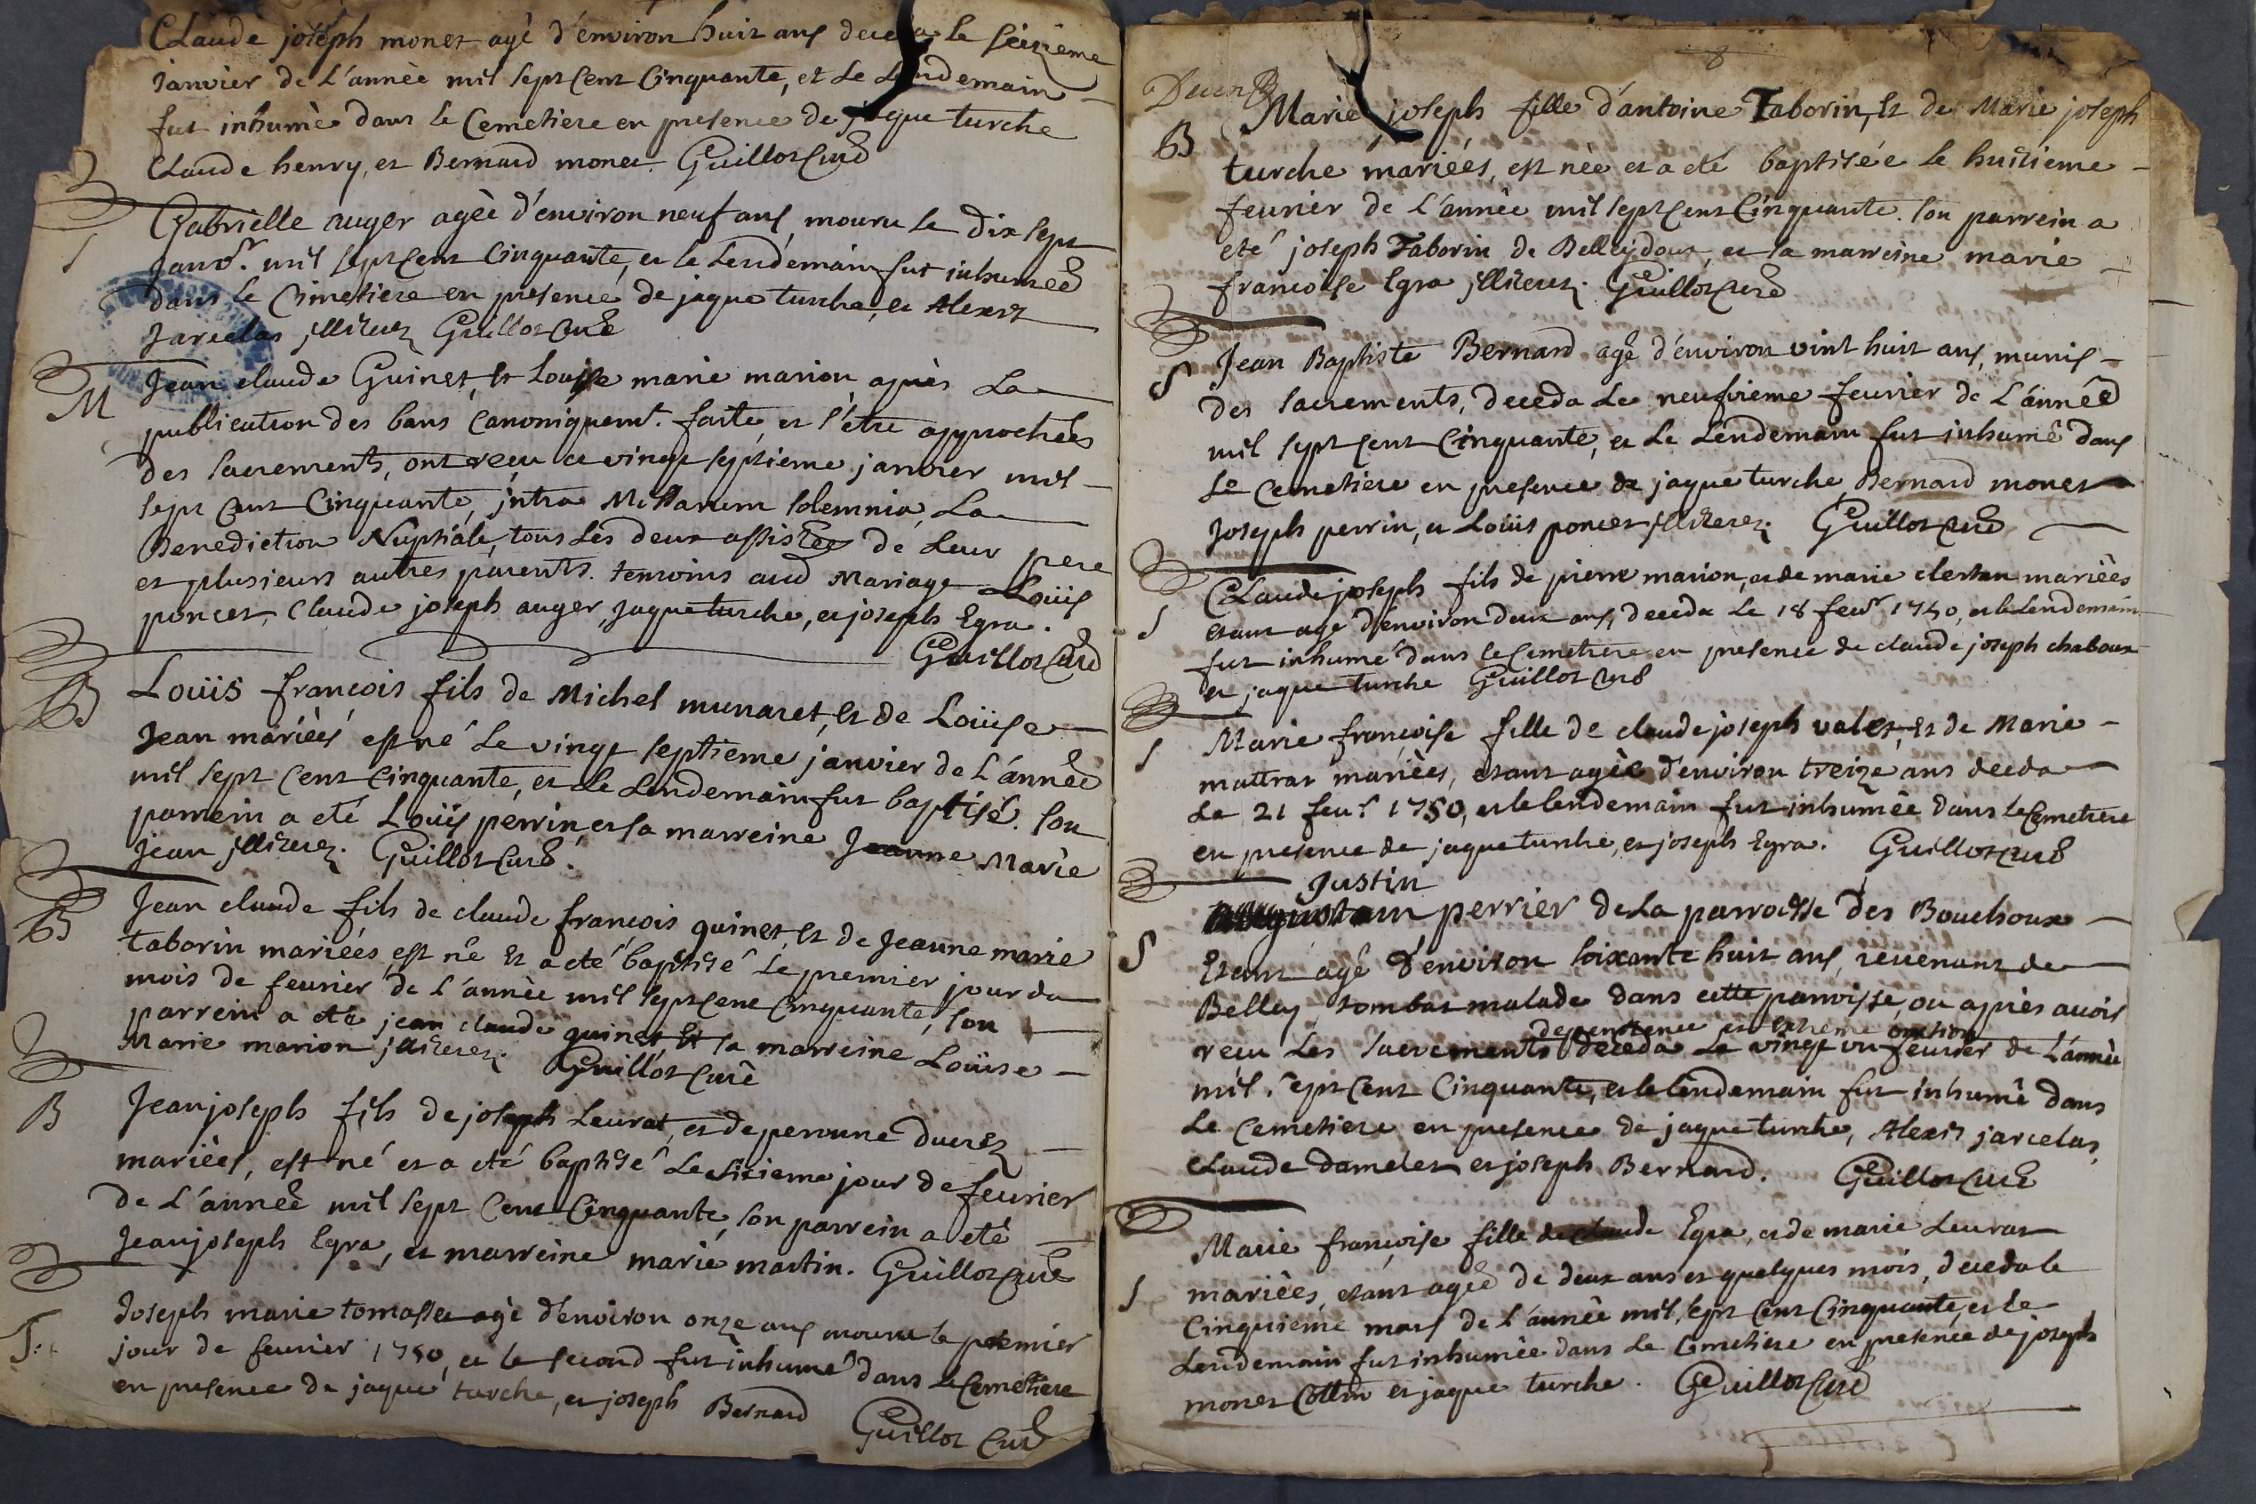 Claude joseph monet agé d'environ huit ans deceda le seizieme
janvier de l'année mil sept cent cinquante, et le lendemain
fut inhumé dans le cemetiere en presence de jaque turche
Claude henry, et Bernard monet. Guillot curé
S
Gabrielle auger agée d'environ neuf ans mouru le dix sept
janvr. mil sept cent cinquante, et le lendemain fut inhumée
dans le cimetiere en presence de jaque turche, et Alexis
jarcelas illiterez Guillot curé
M
Jean claude Guinet, et Louise marie marion après la
publication des bans canoniquemt. faite, et s'étre approchées
des sacrements, ont reçu ce vingt septieme janvier mil
sept cent cinquante, intra Missarum solemnia, la
Benediction Nuptiale, tous les deux assistés de leur pere
et plusieurs autres parents. temoins aud Mariage Loüis
poncet, Claude joseph auger, jaque turche, et joseph Egra.
Guillot curé
B
Loüis françois fils de Michel munaret, et de Loüise
Jean mariéés est né le vingt septieme janvier de l'année
mil sept cent cinquante, et le lendemain fut baptisé. son
parrein a eté Loüis perrin et sa marreine Jeanne Marie
Jean illiterez. Guillot curé.
B
Jean claude fils de claude françois guinet, et de Jeanne marie
taborin mariéés est né et a eté baptisé le premier jour du
mois de feurier de l'année mil sept cent cinquante, son
parrein a eté jean claude guinet et sa marreine Loüise
Marie marion illiterez. Guillot curé
B
Jean joseph fils de joseph Leurat, et de peroune ducrez
mariéés, est né et a eté baptisé le sixieme jour de feurier
de l'année mil sept cent cinquante, son parrein a eté
Jean joseph Egra, et marreine marie martin. Guillot curé
S
Joseph marie tomasset agé d'environ onze ans mouru le premier
jour de feurier 1750, et le second fut inhumé dans le cemetiere
en presence de jaque turche, et joseph Bernard
Guillot curé
8
B
Marie joseph fille d'antoine Taborin, et de Marie joseph
turche mariéés, est née et a eté baptisée le huitieme
feurier de l'année mil sept cent cinquante. son parrein a
eté joseph Taborin de Belleydoux, et sa marreine marie
francoise Egra illiterez. Guillot curé
S
Jean Baptiste Bernard agé d'environ vint huit ans, munis
des sacrements, deceda le neufvieme feurier de l'année
mil sept cent cinquante, et le lendemain fut inhumé dans
le cemetiere en presence de jaque turche, Bernard monet
Joseph perrin, et Loüis poncet illiterez. Guillot curé
S
Claude joseph fils de pierre marion, et de marie mariéés
etant agé d'environ deux ans, deceda le 18 feur 1750, et le lendemain
fut inhumé dans le cemetiere en presence de claude joseph chaboux
et jaque turche Guillot curé
S
Marie françoise fille de claude joseph valet, et de Marie
mattras mariéés, etant agée d'environ treize ans deceda
le 21 feur 1750, et le lendemain fut inhumée dans le cemetiere
en presence de jaque turche, et joseph Egra. Guillot curé
Justin
S
perrier de la parroisse des Bouchoux
etant agé d'environ soixante huit ans, reuenant de
Belley tombat malade dans cette parroisse, ou après auoir
de penitence et extreme onction
reçu les sacrements deceda le vingt un feurier de l'année
mil sept cent cinquante, et le lendemain fut inhumé dans
le cemetiere en presence de jaque turche, Alexis jarcelas,
claude damelet et joseph Bernard. Guillot curé
S
Marie françoise fille de claude Egra, et de marie Leurat
mariéés, etant agée de deux ans et quelques mois, deceda le
cinquieme mars de l'année mil sept cent cinquante, et le
lendemain fut inhumée dans le cemetiere en presence de joseph
monet Collin et jaque turche. Guillot curé